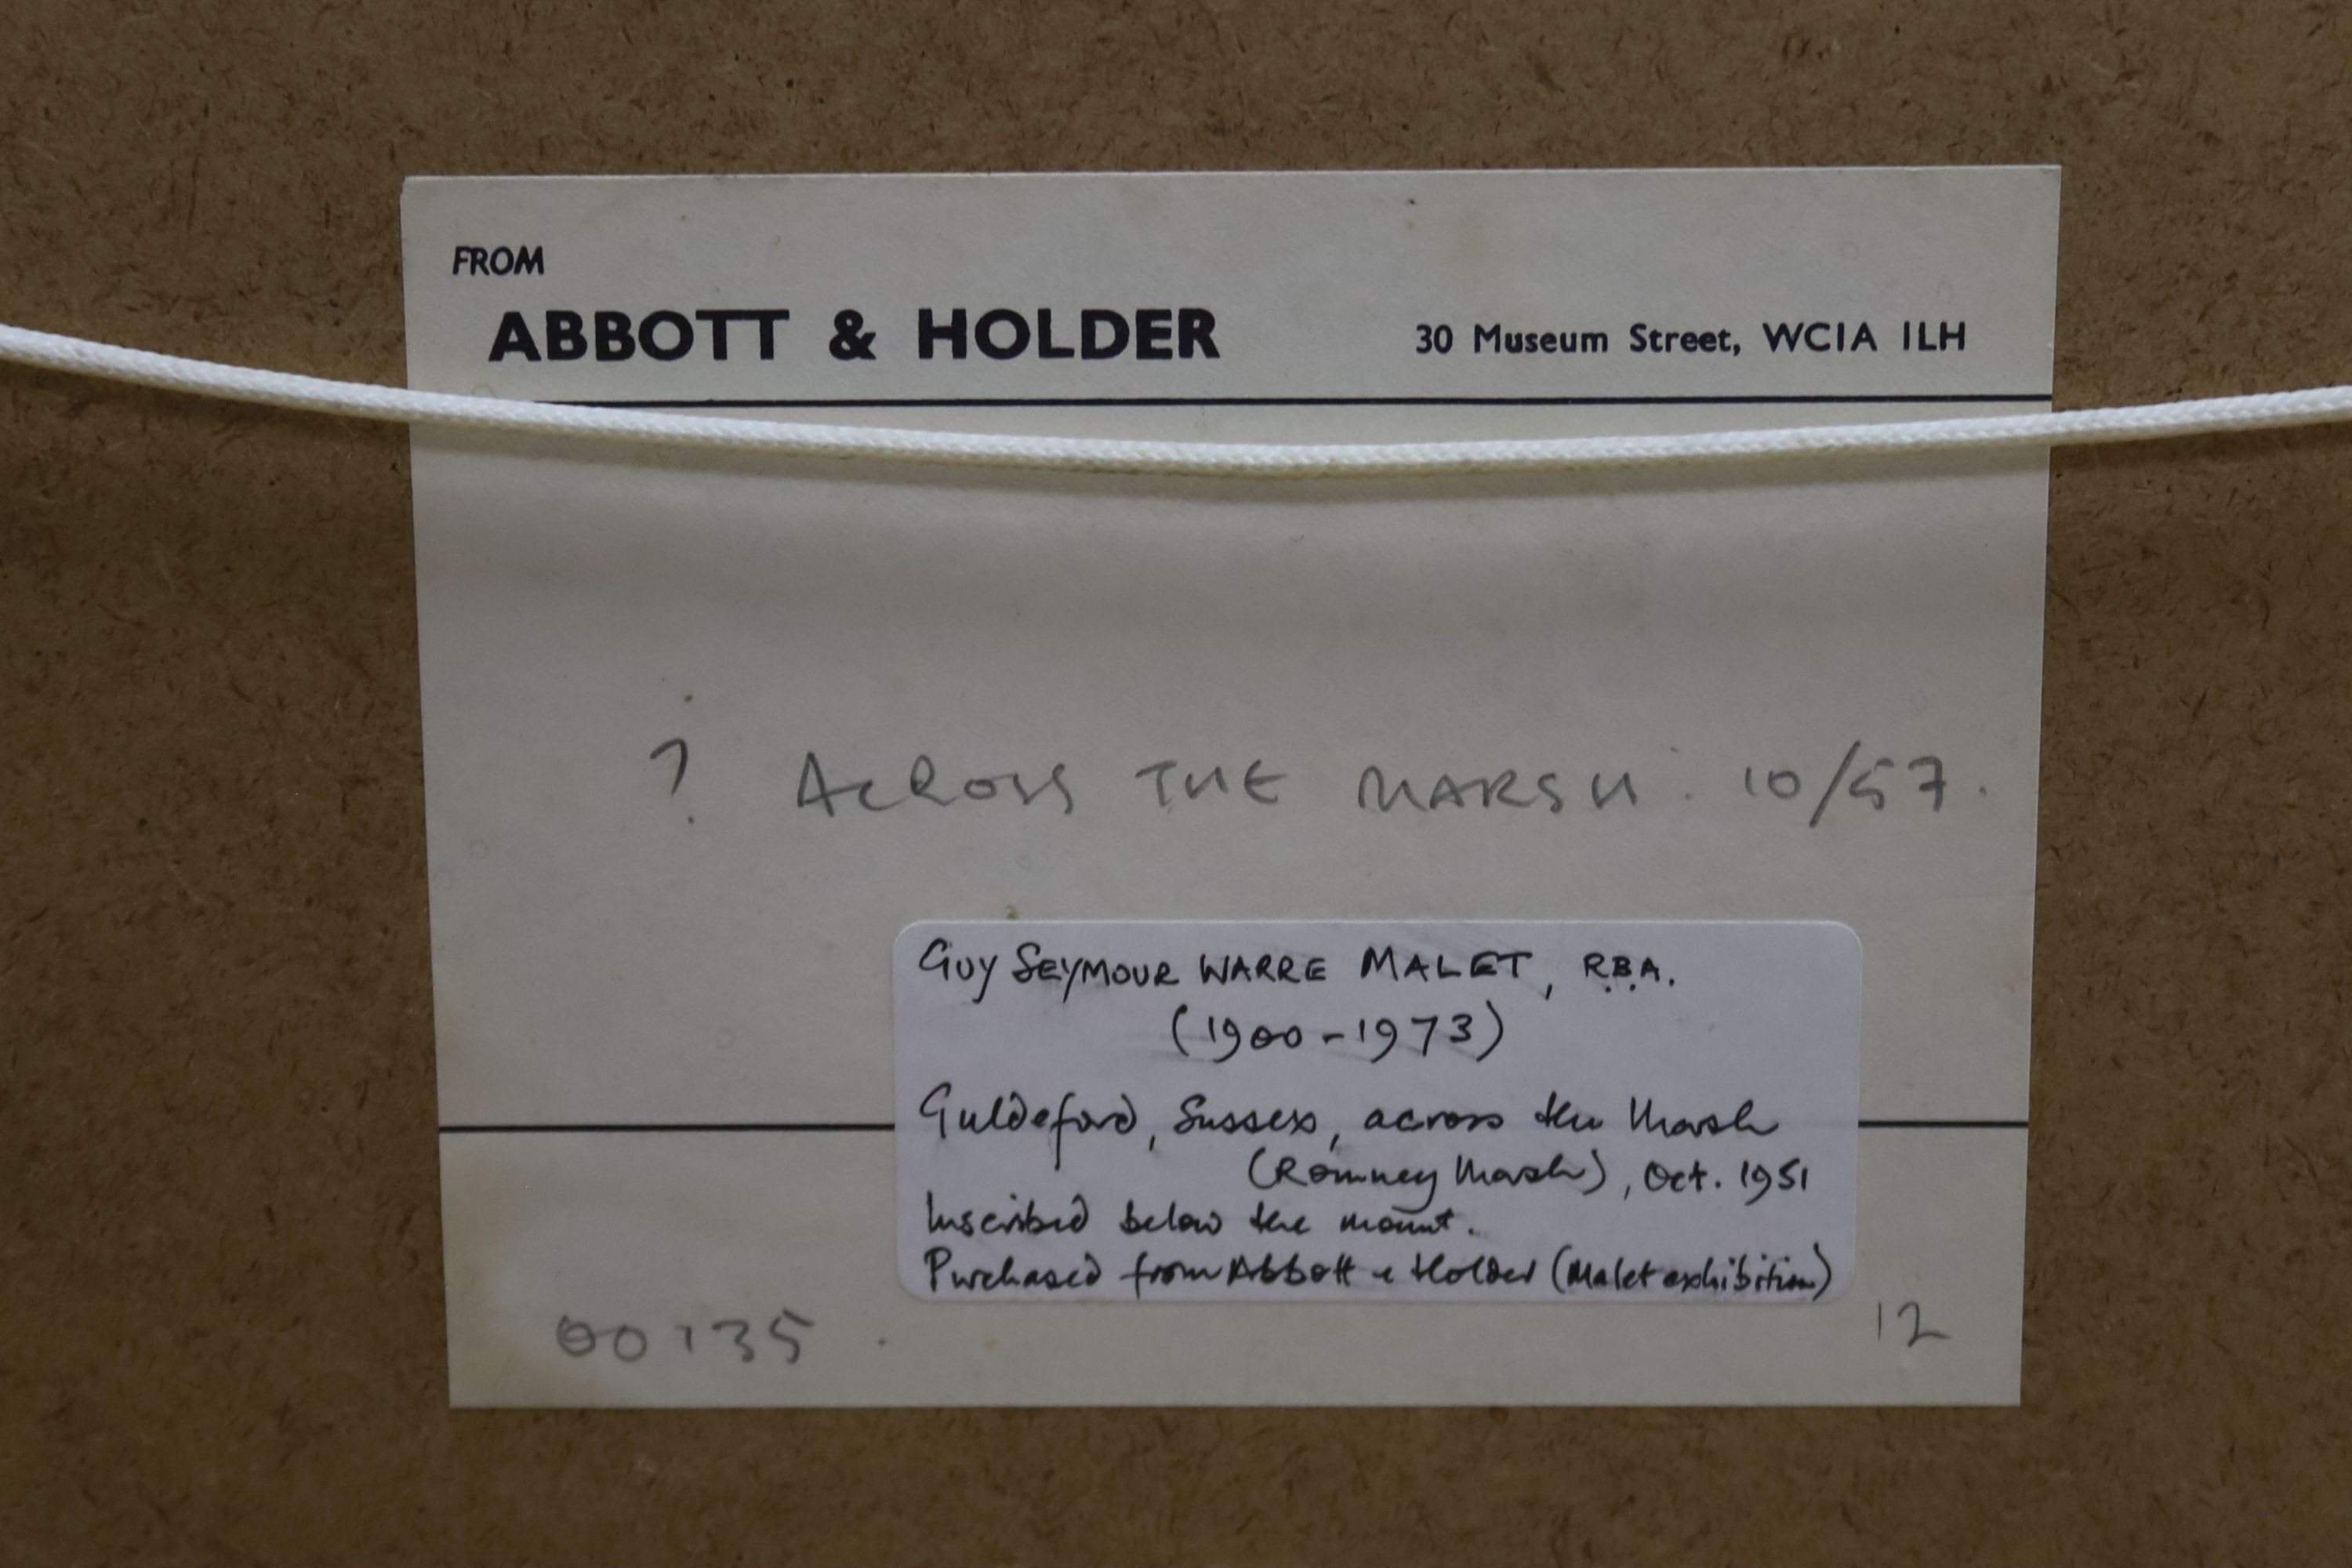 FROM
ABBOTT & HOLDER 30 Museum Street, WC1A 1LH
? ACROSS THE MARSH. 10/57.
GUY SEYMOUR WARRE MALET, R.B.A.
(1900-1973)
Guldeford, Sussex, across the Marsh
(Romney Marsh), Oct. 1951
Inscribed below the mount.
Purchased from Abbott & Holder (Malet exhibition)
00135.
12